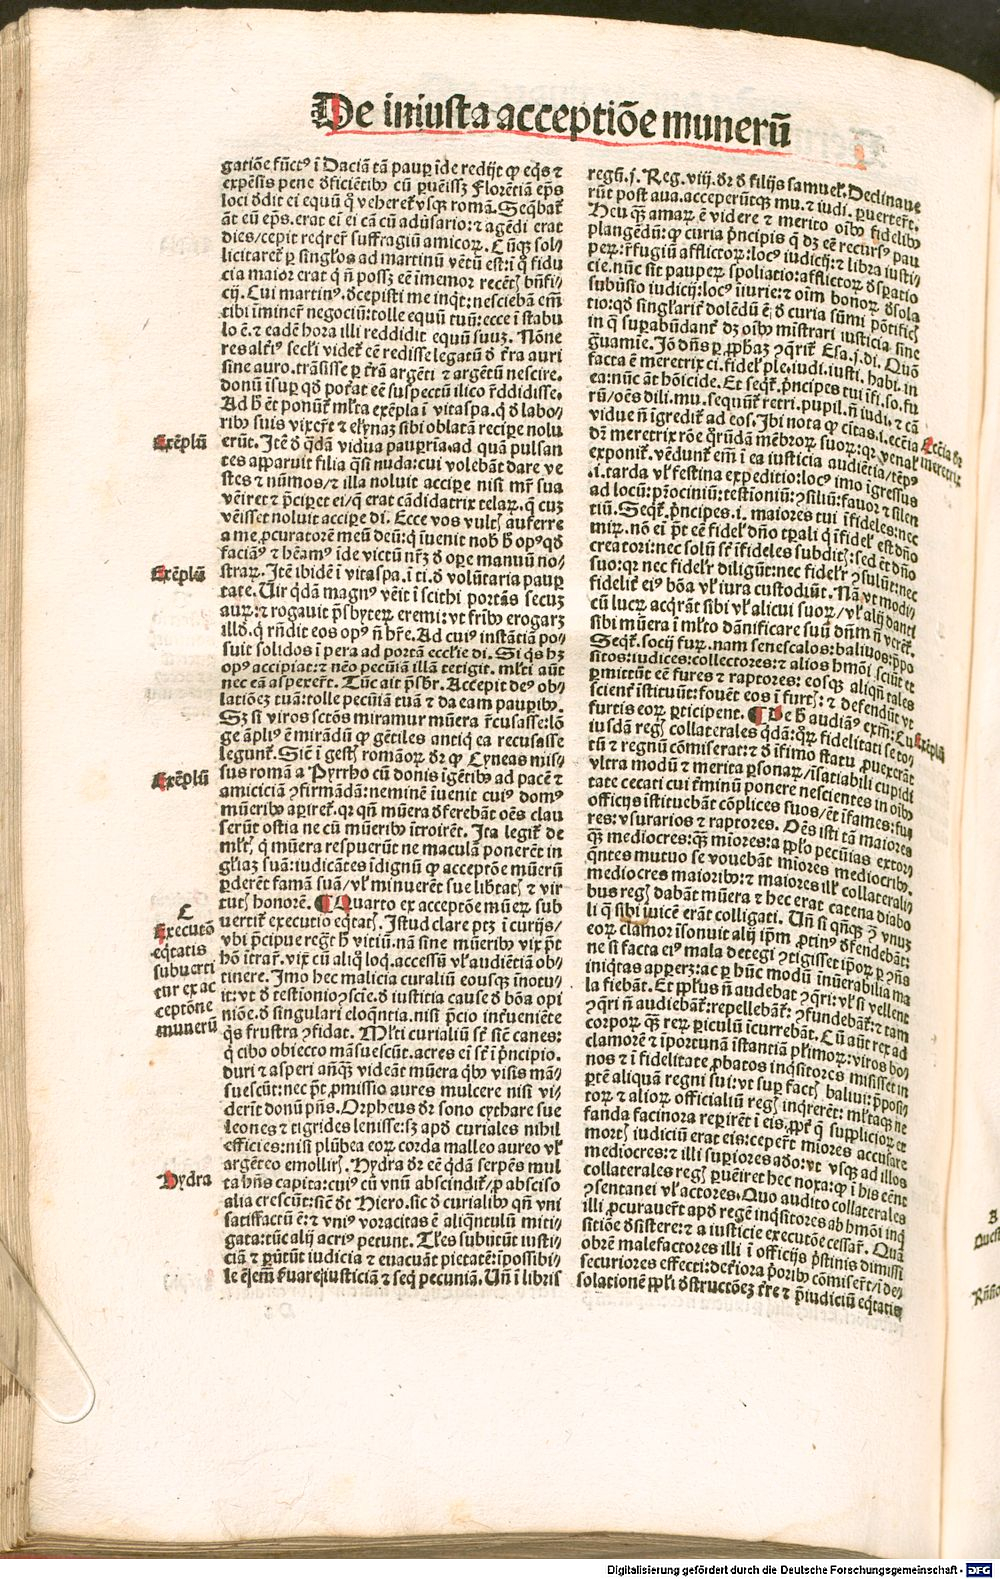 De iniusta acceptiōe munerū
gatiōe fūctꝰ ī Daciā tā pauꝑ īde redijt ꝙ eqͥs ⁊
expēsis pene ꝺficiētibꝰ cū ꝑuēissꝫ Florētiā ep̄s
loci ꝺdit ei equū q̄ veheret vsqꝫ romā. Seq̄bat
āt eū ep̄s. erat ei ei cā cū aduersario: ⁊ agēdi erat
dies/cepit reqͥrer suffragiū amicoꝝ. Cūqꝫ sol/
licitaret ꝑ singlos ad martinū vētū est: ī q̄ fidu
cia maior erat q̄ nō possꝫ eē īmemor recētꝭ bn̄fi/
cij. Cui martinꝰ. ꝺcepisti me inqͥt: nesciebā em̄
tibi īminer negociū: tolle equū tuū: ecce ī stabu
lo ē. ⁊ eadē hora illi reddidit equū suuꝫ. Nōne
res alt̓iꝰ secłi videt eē redisse legatū ꝺ tr̄a auri
sine auro. trāsisse ꝑ tr̄ā argēti ⁊ argētū nescire.
donū īsuꝑ qꝺ poter̄at eē suspectū ilico rēddidisse.
Ad ħ ēt ponūt ml̓ta exēpla ī vitaspa. q̄ ꝺ labo/
ribꝰ suis vixer̄t ⁊ elynaꝫ sibi oblatā recipe nolu
erūt. Itē ꝺ qͣdā vidua pauꝑria. ad quā pulsan
tes apparuit filia qͣsi nuda: cui volebāt dare ve
stes ⁊ nūmos/ ⁊ illa noluit accipe nisi mr̄ sua
vēiret ⁊ p̄ciperet ei/q̄ erat cādidatrix telaꝝ. q̄ cuꝫ
vēisset noluit accipe di. Ecce vos vultꝭ auferre
a me ꝓcuratorē meū deū: q̄ īuenit nob̄ ħ opꝰ qꝺ
faciāꝰ ⁊ hēamꝰ īde victū nr̄ꝫ ꝺ ope manuū no/
straꝝ. Itē ibidē ī vitaspa. ī ti. ꝺ volūtaria pauꝑ
tate. Uir qͥdā magnꝰ vēit ī scithi portās secuꝫ
auꝝ: ⁊ rogauit p̄sbyteꝝ eremi: vt fribꝰ erogarꝫ
illꝺ. q̄ rn̄dit eos opꝰ nō hr̄e. Ad cuiꝰ instātiā po/
suit solidos ī pera ad portā eccłie di. Si qͥs hꝫ
opꝰ accipiat: ⁊ nēo pecuīā illā tetigit. ml̓ti aūt
nec eā aspexer̄t. Tūc ait p̄sbr̄. Accepit deꝰ ob/
latiōeꝫ tuā: tolle pecuīā tuā ⁊ da eam paupibꝰ.
Sꝫ si viros sctōs miramur mūera r̄cusasse: lō
ge āplīꝰ ē mirādū ꝙ gētiles antiqͥ ea recusasse
legunt. Sic̄ ī gestꝭ romāoꝝ ꝺr ꝙ Cyneas mis/
sus romā a Pyrrho cū donis īgētibꝰ ad pacē ⁊
amiciciā ꝯfirmādā: neminē īuenit cuiꝰ domꝰ
mūeribꝰ aꝑiret. qꝛ qn̄ mūera ꝺferebāt oēs clau
serūt ostia ne cū mūeribꝰ ītroirēt. Ita legit̄ de
ml̓tꝭ, q̄ mūera respuerūt ne maculā ponerēt in
gl̓iaꝫ suā: iudicātes īdignū ꝙ acceptōe mūerū
ꝑderēt famā suā/vł minuerēt sue lib̄tatꝭ ⁊ vir
tutꝭ honorē. ¶ Quarto ex acceptōe mūeꝝ sub
vertit executio eqͥtatꝭ. Istud clare ptꝫ ī curijs/
vbi p̄cipue regt̄ ħ vitiū. nā sine mūeribꝰ vix p̄t
hō itrar. vix cū aliqͦ loq. accessū vł audiētiā ob/
tinere. Imo hec malicia curaliū eousqꝫ inotu/
it: vt ꝺ testionio ꝯscīe. ꝺ iustitia cause ꝺ bōa opi
niōe. ꝺ singulari eloqntia. nisi p̄cio inteuēiēte
qͥs frustra ꝯfidat. Ml̓ti curialiū st̄ sic̄ canes:
q̄ cibo obiecto māsuescūt. acres ei st̄ ī p̄ncipio.
duri ⁊ asperi anq̄ꝫ videāt mūera qͥbꝰ visis mā/
suescūt: nec p̄t ꝓmissio aures mulcere nisi vi/
derīt donū p̄ns. Orpheus ꝺr sono cythare sue
leones ⁊ tigrides lenisse: sꝫ apꝺ curiales nihil
efficies: nisi plūbea eoꝝ corda malleo aureo vł
argēteo emollirꝭ. Hydra ꝺr eē qͥdā serpēs mul
ta hn̄s capita: cuiꝰ cū vnū abscindit/ꝑ absciso
alia crescūt: sic̄ ꝺt Hiero. sic ꝺ curialibꝰ qn̄ vni
satiffactū ē: ⁊ vniꝰ voracitas ē aliqntulū miti/
gata: tūc alij acriꝰ petunt. Tales subūtūt iusti/
ciā ⁊ ꝑuūtūt iudicia ⁊ euacuāt pietatē: īpossibi/
le ēem̄ ẜuare iusticiā ⁊ seq̄ pecuniā. Un̄ ī libris
regū. j. Reg. viij. ꝺr ꝺ filijs samuel. Declinaue
rūt post aua. acceperūtqꝫ mu. ⁊ iudi. ꝑuerter̄t.
Heu qͣꝫ amaꝝ ē videre ⁊ merito oibꝰ fidelibꝰ
plangēdū: ꝙ curia p̄ncipis q̄ dꝫ eē recursꝰ pau
peꝝ: r̄fugiū afflictoꝝ: locꝰ iudicij: ⁊ libra iusti/
cie. nūc sit pauperꝝ spoliatio: afflictoꝝ ꝺsꝑatio
subūsio iudicij: locꝰ iniurie: ⁊ oīm bonoꝝ ꝺsola
tio: qꝺ singłarit̄ dolēdū ē ꝺ curia sūmi pōtificꝭ
in q̄ suꝑabūdant̄ dꝫ oibꝰ mīstrari iusticia sine
grauamīe. Iō dn̄s ꝑ ꝓphaꝫ ꝯqͥrit̄ Esa. j. di. Quō
facta ē meretrix ci. fidel̓ ple. iudi. iusti. habi. in
ea: nūc āt hōicide. Et seqt̄. p̄ncipes tui īfi. so. fu
rū/oēs di li. mu. sequūt̄ retri. pupil. nō iudi. ⁊ cā
vidue nō īgredit̄ ad eos. Ibi nota ꝙ citas. i. eccīa
dꝫ meretrix rōe qͦrūdā mēbroꝝ suoꝝ: qꝛ venał
exponit. vēdunt̄ em̄ ī ea iusticia audiētia/tēpꝰ
.i. tarda vł festina expeditio: locꝰ imo īgressus
ad locū: pr̄ociniū: testioniū: ꝯsiliū: fauor ⁊ silen
tiū. Seqt̄. p̄ncipes. i. maiores tui īfideles: nec
miꝝ. nō ei p̄t eē fidel̓ dn̄o tꝑali q̄ īfidel̓ est dn̄o
creatori: nec solū st̄ īfideles subditꝭ: sed ⁊ dn̄o
suo: qꝛ nec fidelr̄ diligūt: nec fidelr̄ ꝯsulūt: nec
fidelit̄ eiꝰ bōa vł iura custodiūt. Nā vt modi/
cū lucꝝ acqͥrāt sibi vł alicui suoꝝ/vł alij dantꝭ
sibi mūera ī ml̓to dānificare suū dn̄m nō verēt̄.
Seqt̄. socij furꝝ. nam senescalos: baliuos: p̄po
sitos: iudices: collectores: ⁊ alios hmōi sciūt et
ꝑmittūt eē fures ⁊ raptores: eosqꝫ aliqn̄ tales
sciēnt īstituūt: fouēt eos ī furtꝭ: ⁊ defendūt vt
furtis eoꝝ ꝑticipent. ¶ De ħ audiāꝰ exm̄: Cu
iusdā regꝭ collaterales qͥdā: qͦꝝ fidelitati se to/
tū ⁊ regnū cōmiserat: ⁊ ꝺ īfimo statu ꝓuexerāt
vltra modū ⁊ merita ꝑsonaꝝ/īsatiabili cupidi
tate cecati cui t̄minū ponere nescientes in oibꝰ
officijs īstituebāt cōplices suos/ēt īfames: fu
res: vsurarios ⁊ raptores. Oēs isti tā maiores
qͣꝫ mediocres: qͣꝫ miōres: a ꝓplo pecūias extor
qn̄tes mutuo se vouebāt miores mediocribꝰ.
mediocres maioribꝰ: ⁊ maiores ill̓ collaterali/
bus regꝭ dabāt mūera ⁊ hec erat catena diabo
li q̄ sibi īuicē erāt colligati. Un̄ si qn̄qꝫ ꝯ vnuꝫ
eoꝝ clamor īsonuit alij ip̄m ꝓtinꝰ ꝺfendebāt:
ne si facta eiꝰ mala detegi ꝯtigisset ip̄oꝝ ꝑ ꝯn̄s
iniqͥtas apperꝫ: ac ꝑ hūc modū īnūerabilia ma
la fiebāt. Et pplus nō audebat ꝯqͥri: vł si vellent
ꝯqͥri nō audiebāt̄: repellebāt̄: ꝯfundebāt̄: ⁊ tam
corpoꝝ qͣꝫ reꝝ ꝑiculū īcurrebāt. Cū aūt rex ad
clamorē ⁊ īportunā īstantiā pl̓imoꝝ: viros bo/
nos ⁊ ī fidelitate ꝓbatos inqͥsitores misisset in
ꝑtē aliquā regni sui: vt suꝑ factꝭ baliui: p̄posi/
toꝝ ⁊ alioꝝ officialiū regꝭ inqͥrerēt: ml̓taqꝫ ne
fanda facinora reꝑirēt ī eis, ꝓpt̄ q̄ suppliciorꝫ et
mortꝭ iudiciū erat eis: ceꝑēt miores accusare
mediocres: ⁊ illi suꝑiores adeo: vt vsqꝫ ad illos
collaterales regꝭ ꝑuēiret hec noxa: ꝙ ī his eēnt
ꝯsentanei vł actores. Quo audito collaterales
illi ꝓcurauēt apꝺ regē inqͥsitores ab hmōi inqͥ
sitiōe ꝺsistere: ⁊ a iusticie executōe cessar̄t. Quā
obrē malefactores illi ī officijs p̄stinis dimissi
securiores effecti: det̄iora p̄oribꝰ cōmiser̄t/ī de/
solationē ppłi ꝺstructōeꝫ tr̄e ⁊ p̄iudiciū eqͥtatis
Exēplū
Exēplū
Exēplū
C
Executō
eqͥtatis
subuerti
tur ex ac
ceptōne
munerū
Hydra
Eccīa ꝺꝛ
meretrix
Exēplū
Digitalisierung gefördert durch die Deutsche Forschungsgemeinschaft - DFG